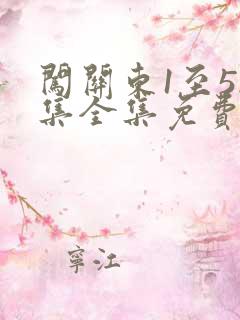 闖關東1至5
集全集免費
寧江